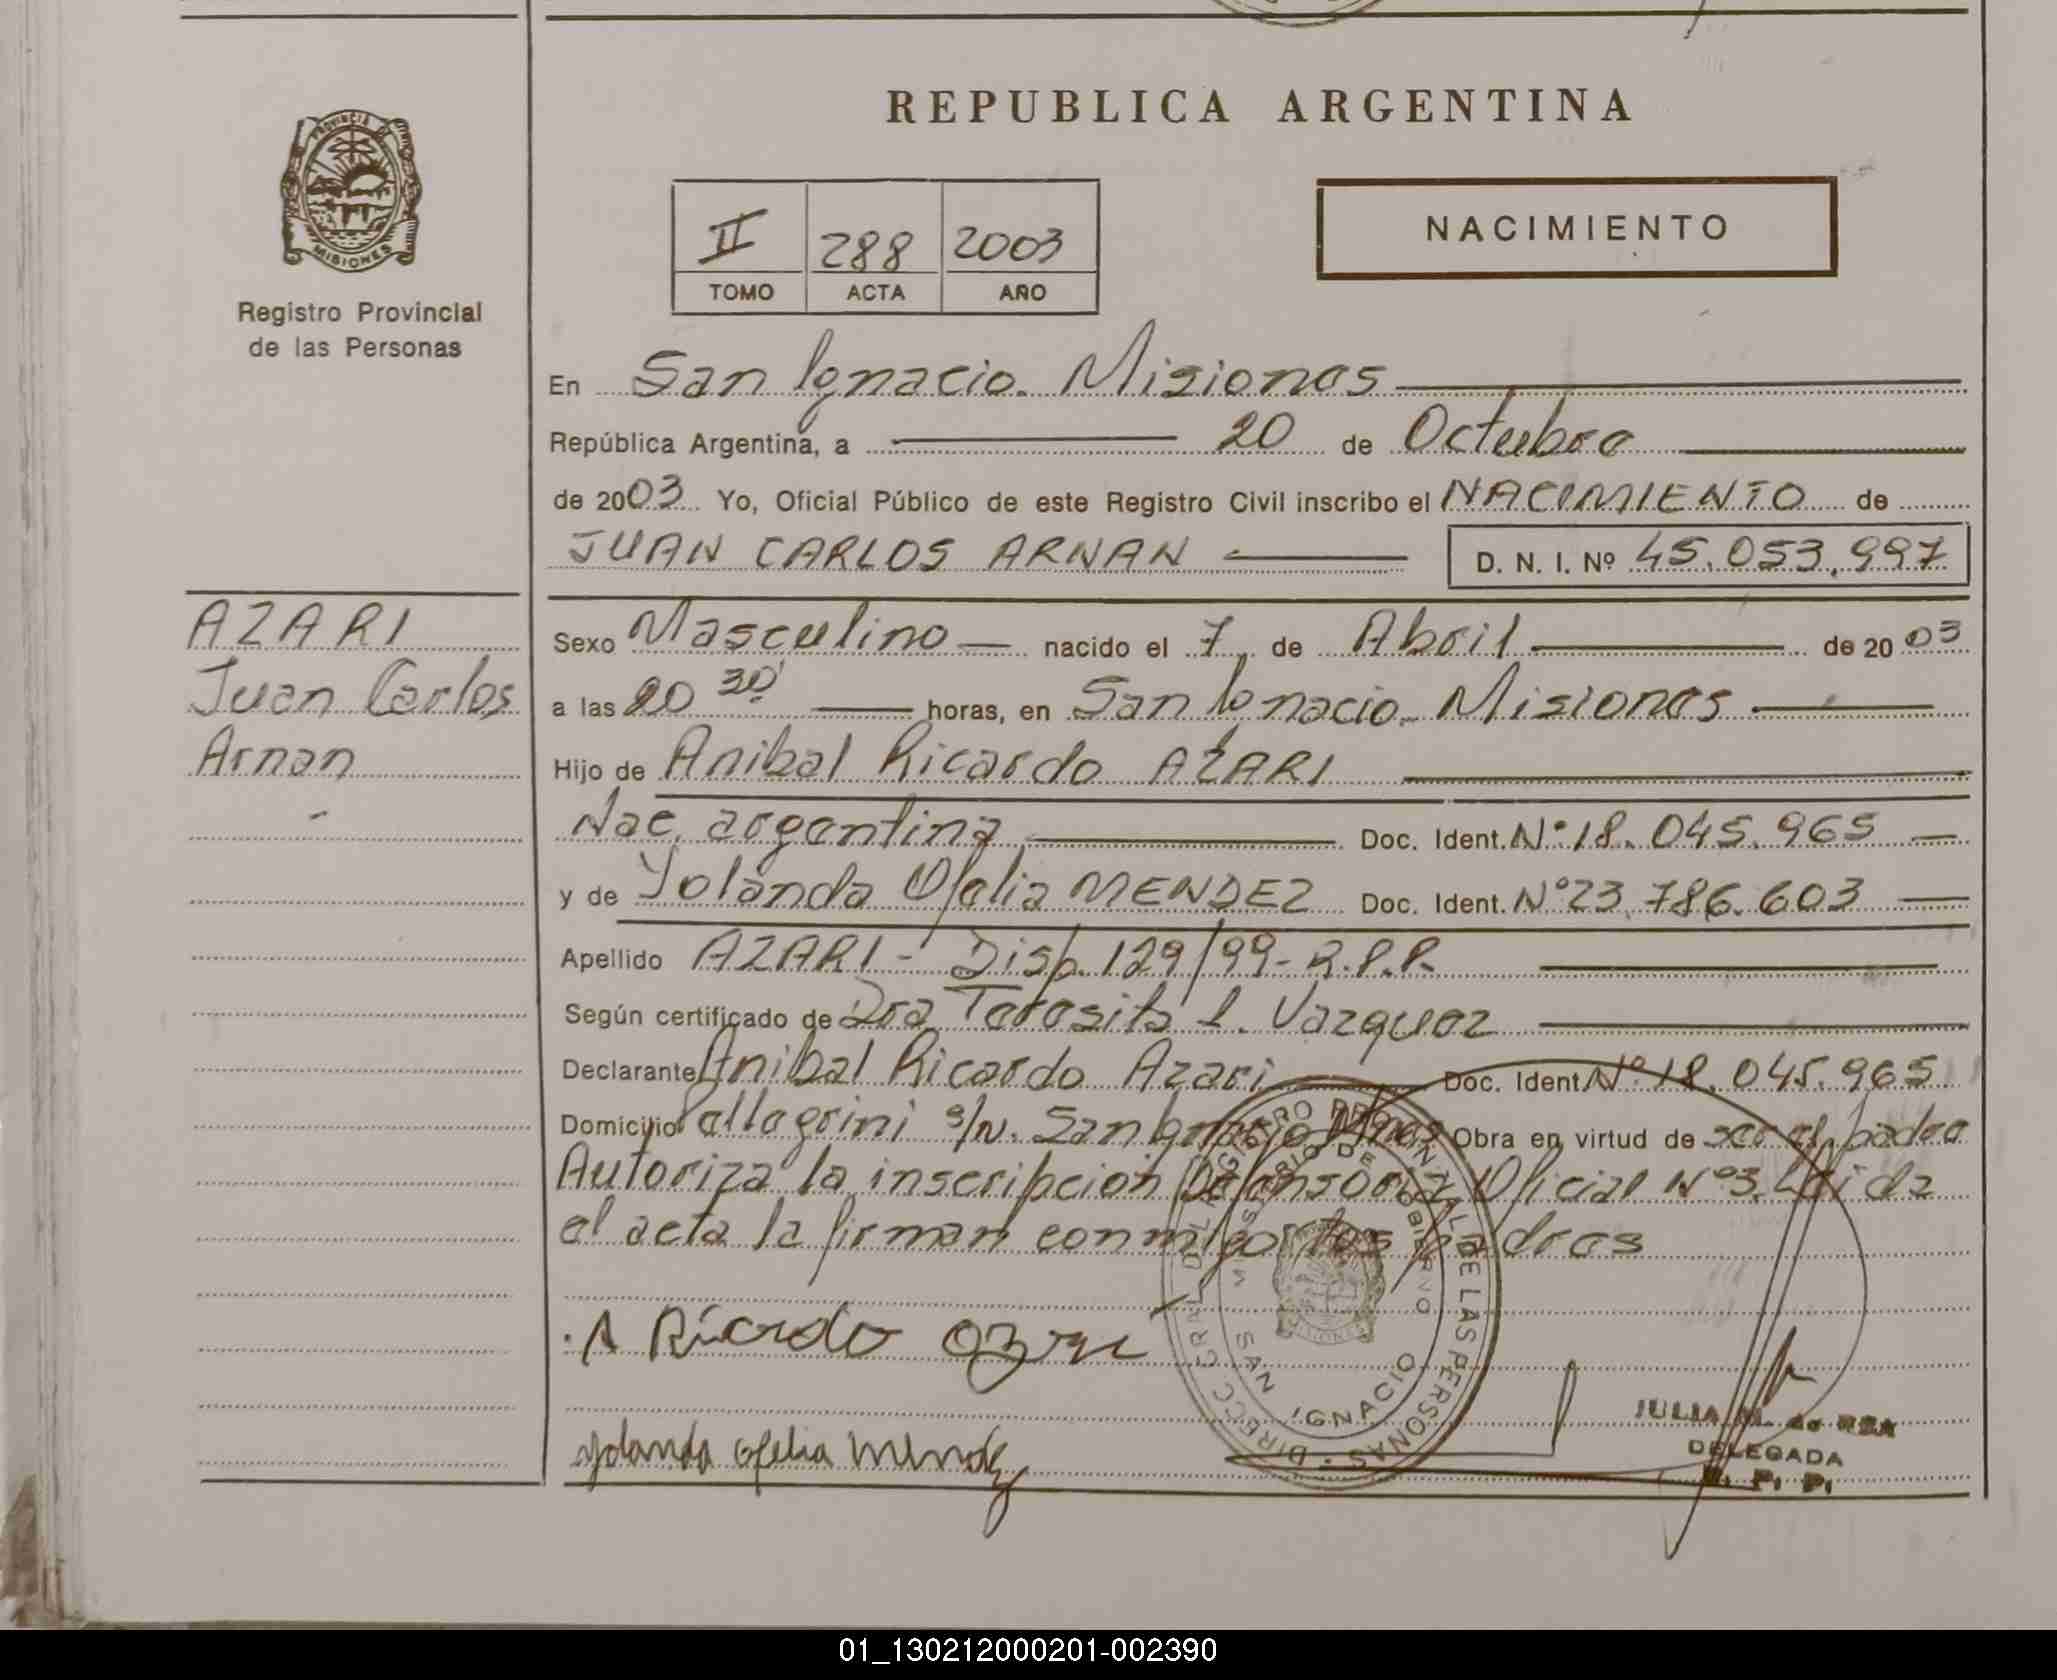 REPUBLICA ARGENTINA
PROVINCIA DE
MISIONES
Registro Provincial
de las Personas
II 288 2003
TOMO ACTA AÑO
NACIMIENTO
En San Ignacio. Misiones
República Argentina, a 20 de Octubre
de 2003 Yo, Oficial Público de este Registro Civil inscribo el NACIMIENTO de
JUAN CARLOS ARNAN D. N. I. Nº 45.053.997
AZARI
Juan Carlos
Arnan
Sexo Masculino nacido el 7 de Abril de 2003
a las 20 30 horas, en San Ignacio. Misiones
Hijo de Anibal Ricardo AZARI
Nac. argentina Doc. Ident. Nº 18.045.965
y de Yolanda Ofelia MENDEZ Doc. Ident. Nº 23.786.603
Apellido AZARI - Disp. 129/99- R.P.P.
Según certificado de Dra Teresita L. Vazquez
Declarante Anibal Ricardo Azari Doc. Ident. Nº 18.045.965
Domicilio Pellegrini s/N. San Ignacio Mnes Obra en virtud de ser el padre
Autoriza la inscripción Defensoria Oficial Nº3. Leida
el acta la firman conmigo los padres
A Ricardo Azari
Yolanda Ofelia Mendez
DIRECC GRAL DEL REGISTRO PROVINCIAL DE LAS PERSONAS
MINISTERIO DE GOBIERNO
SAN IGNACIO
MISIONES
JULIA M. de
DELEGADA
R. P. P.
01_130212000201-002390